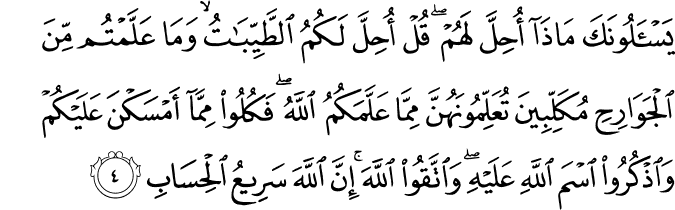 يَسۡـَٔلُونَكَ مَاذَآ أُحِلَّ لَهُمۡۖ قُلۡ أُحِلَّ لَكُمُ ٱلطَّيِّبَٰتُ وَمَا عَلَّمۡتُم مِّنَ
ٱلۡجَوَارِحِ مُكَلِّبِينَ تُعَلِّمُونَهُنَّ مِمَّا عَلَّمَكُمُ ٱللَّهُۖ فَكُلُواْ مِمَّآ أَمۡسَكۡنَ عَلَيۡكُمۡ
وَٱذۡكُرُواْ ٱسۡمَ ٱللَّهِ عَلَيۡهِۖ وَٱتَّقُواْ ٱللَّهَۚ إِنَّ ٱللَّهَ سَرِيعُ ٱلۡحِسَابِ ٤